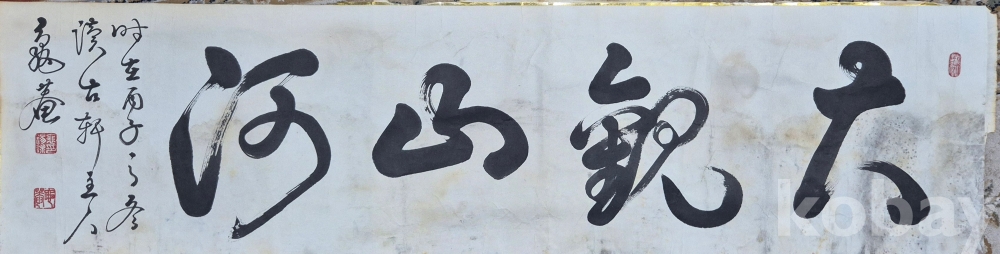 大觀山河
時在丙子之冬
讀古軒主人
kobay